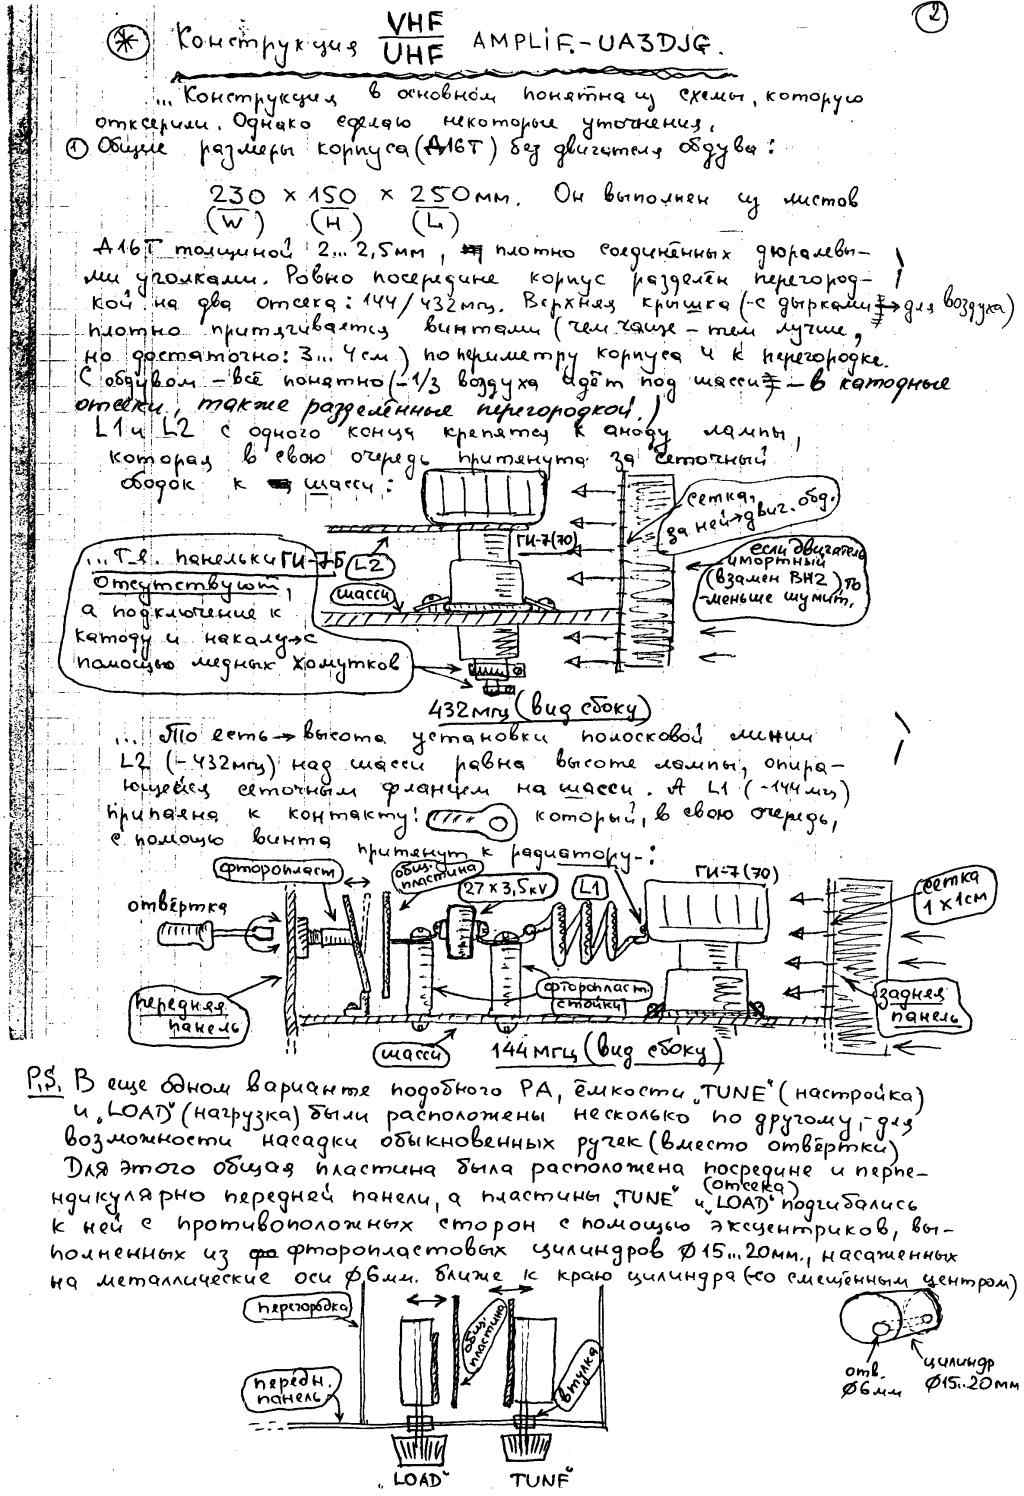 2
* Конструкция VHF/UHF AMPLIF.-UA3DJG.
... Конструкция в основном понятна из схемы, которую
отксерили. Однако сделаю некоторые уточнения.
① Общие размеры корпуса (Д16Т) без двигателя обдува:
230 x 150 x 250мм. Он выполнен из листов
(W) (H) (L)
Д16Т толщиной 2...2,5мм, плотно соединённых дюралевы-
ми уголками. Ровно посередине корпус разделён перегород-
кой на два отсека: 144/432мгц. Верхняя крышка (-с дырками → для воздуха)
плотно притягивается винтами (чем чаще - тем лучше,
но достаточно: 3...4см) по периметру корпуса и к перегородке.
С обдувом - всё понятно (-1/3 воздуха идёт под шасси - в катодные
отсеки, также разделённые перегородкой.)
L1 и L2 с одного конца крепятся к аноду лампы,
которая в свою очередь притянута за сеточный
ободок к шасси:
сетка,
за ней→двиг. обд.
ГИ-7(70)
...Т.е. панельки ГИ-7Б
отсутствуют,
а подключение к
катоду и накалу→с
помощью медных хомутков
L2
шасси
если двигатель
импортный
(взамен ВН2) то
-меньше шумит.
432мгц (вид сбоку)
... То есть → высота установки полосковой линии
L2 (-432мгц) над шасси равна высоте лампы, опира-
ющейся сеточным фланцем на шасси. А L1 (-144мгц)
припаяна к контакту: который, в свою очередь,
с помощью винта притянут к радиатору-:
фторопласт
общ.
пластина
27 x 3,5kV
L1
ГИ-7(70)
сетка
1 x 1см
отвёртка
передняя
панель
фторопласт.
стойки
задняя
панель
шасси
144мгц (вид сбоку)
P.S. В еще одном варианте подобного PA, ёмкости „TUNE" (настройка)
и „LOAD" (нагрузка) были расположены несколько по другому,-для
возможности насадки обыкновенных ручек (вместо отвёртки)
Для этого общая пластина была расположена посредине (отсека) и перпе-
ндикулярно передней панели, а пластины „TUNE" и „LOAD" подгибались
к ней с противоположных сторон с помощью эксцентриков, вы-
полненных из фторопластовых цилиндров Ø15...20мм., насаженных
на металлические оси Ø6мм. ближе к краю цилиндра (-со смещённым центром)
перегородка
общ.
пластина
передн.
панель
втулка
„LOAD"
TUNE"
отв.
Ø6мм
цилиндр
Ø15..20мм